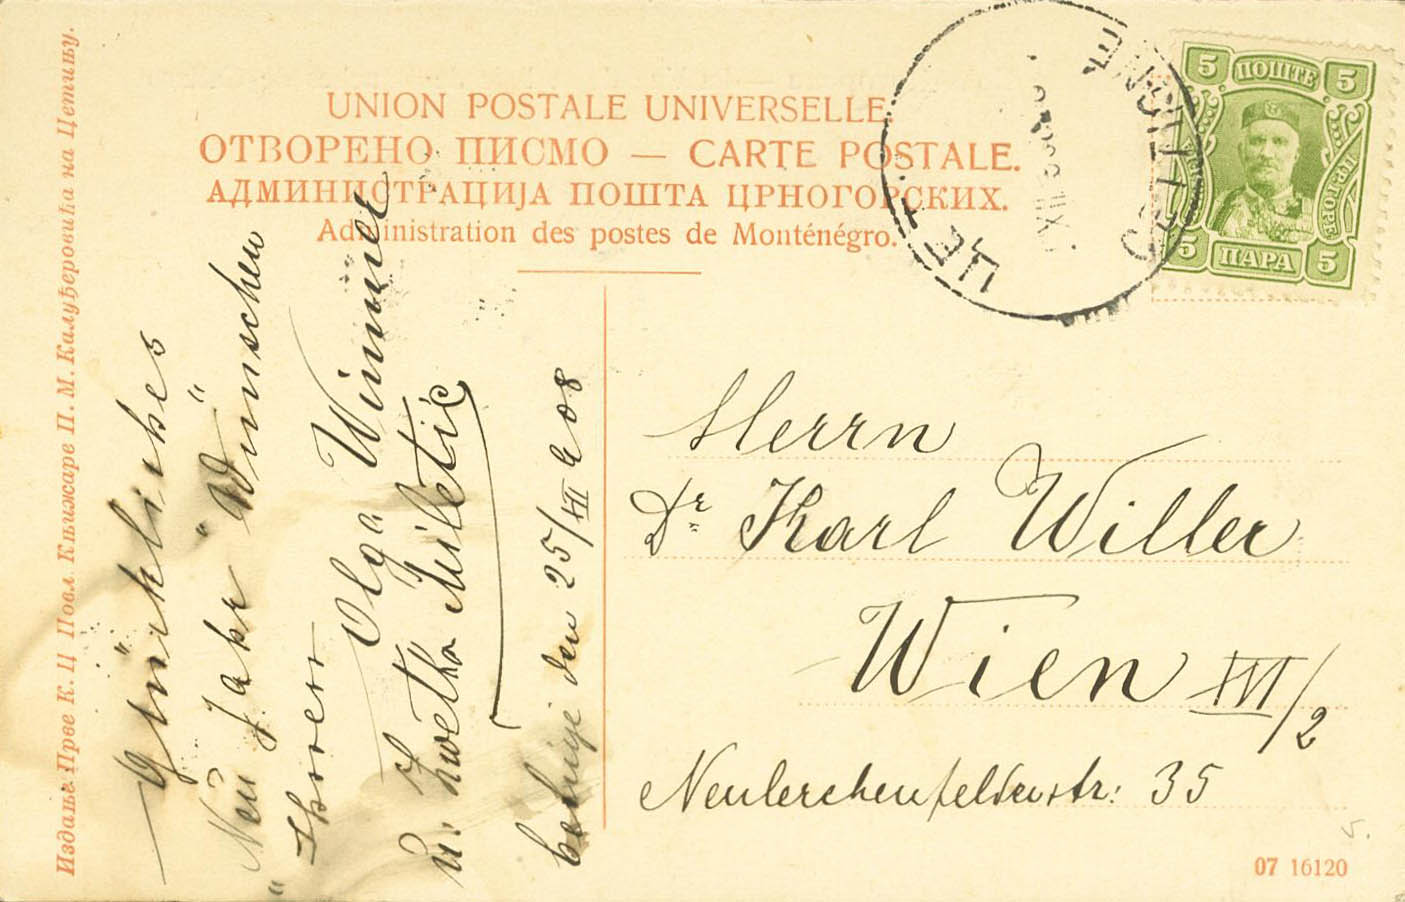 UNION POSTALE UNIVERSELLE
ОТВОРЕНО ПИСМО — CARTE POSTALE.
АДМИНИСТРАЦИЈА ПОШТА ЦРНОГОРСКИХ.
Administration des postes de Monténégro.
5 ПОШТЕ 5
ЦРНЕ ГОРЕ
5 ПАРА 5
ЦЕТ
CETTIGNE
Издање Прве К. Ц Повл. Књижаре П. М. Калуђеровића на Цетињу.
Glückliches
Neu Jahr Wünschen
Ihnen
Olga Wimmer
u. Zwetka Miletić
Cetinje den 25/XII 908
Herrn
Dr Karl Willer
Wien XVI/2
Neulerchenfelderstr: 35
5.
07 16120